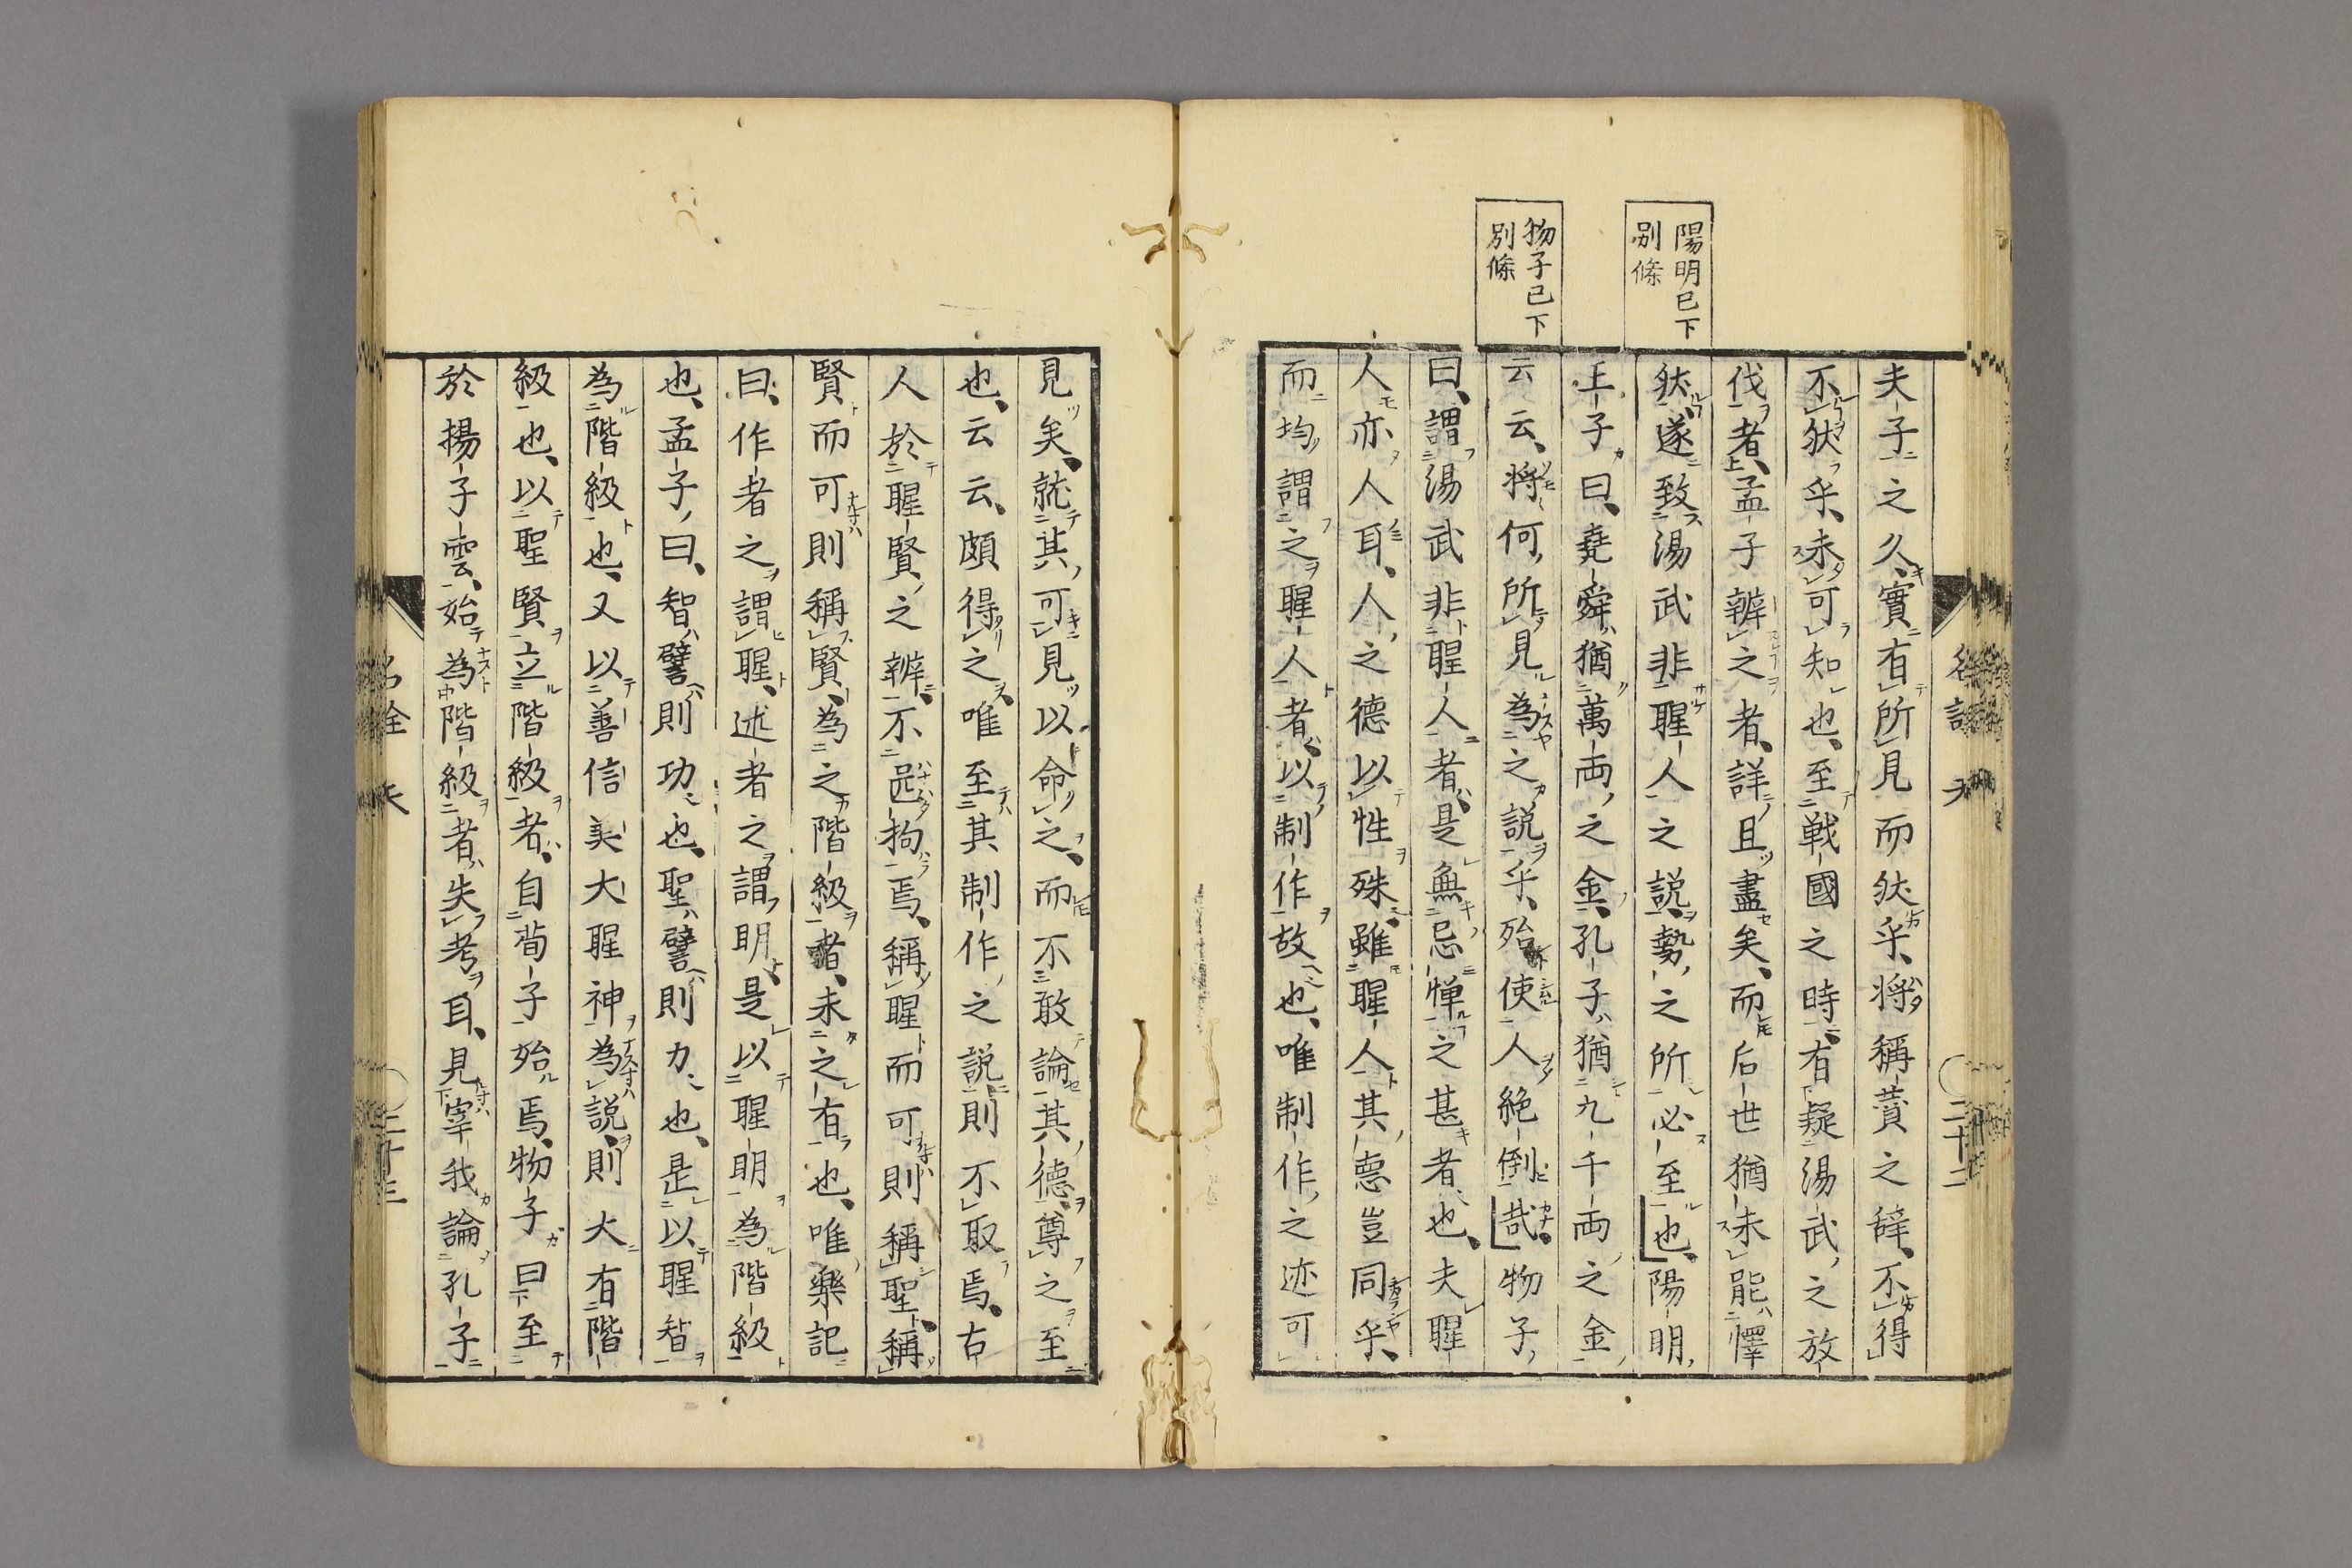 陽明已下
別條
物子已下
別條
夫子之久實有所見而然乎、將稱賛之辭、不得
不然乎、未可知也、至戰國之時、有疑湯武之放
伐者、孟子辨之者、詳且盡矣、而后世猶未能懌
然、遂致湯武非聖人之説、勢之所必至也、陽明
王子曰、堯舜猶萬両之金、孔子猶九千両之金、
云云、將何所見為之説乎、殆使人絶倒哉、物子
曰、謂湯武非聖人者、是無忌憚之甚者也、夫聖
人亦人耳、人之德以性殊、雖聖人其悳豈同乎、
而均謂之聖人者、以制作故也、唯制作之迹可
二十二
見矣、就其可見以命之、而不敢論其德、尊之至
也、云云、頗得之、唯至其制作之説、則不取焉、古
人於聖賢之辨、不必拘焉、稱聖而可則稱聖、稱
賢而可則稱賢、為之階級者、未之有也、唯樂記
曰、作者之謂聖、述者之謂明、是以聖明為階級
也、孟子曰、智譬則功也、聖譬則力也、是以聖智
為階級也、又以善信美大聖神為説、則大有階
級也、以聖賢立階級者、自荀子始焉、物子曰至
於揚子雲、始為階級者、失考耳、見宰我論孔子
二十三